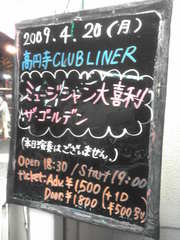 2009.4.20(月)
高円寺CLUB LINER
ミュージシャン大喜利
ザ・ゴールデン
(本日審査はございません。)
Open 18:30 / Start 19:00
ticket: Adv ¥1500
Door ¥1800